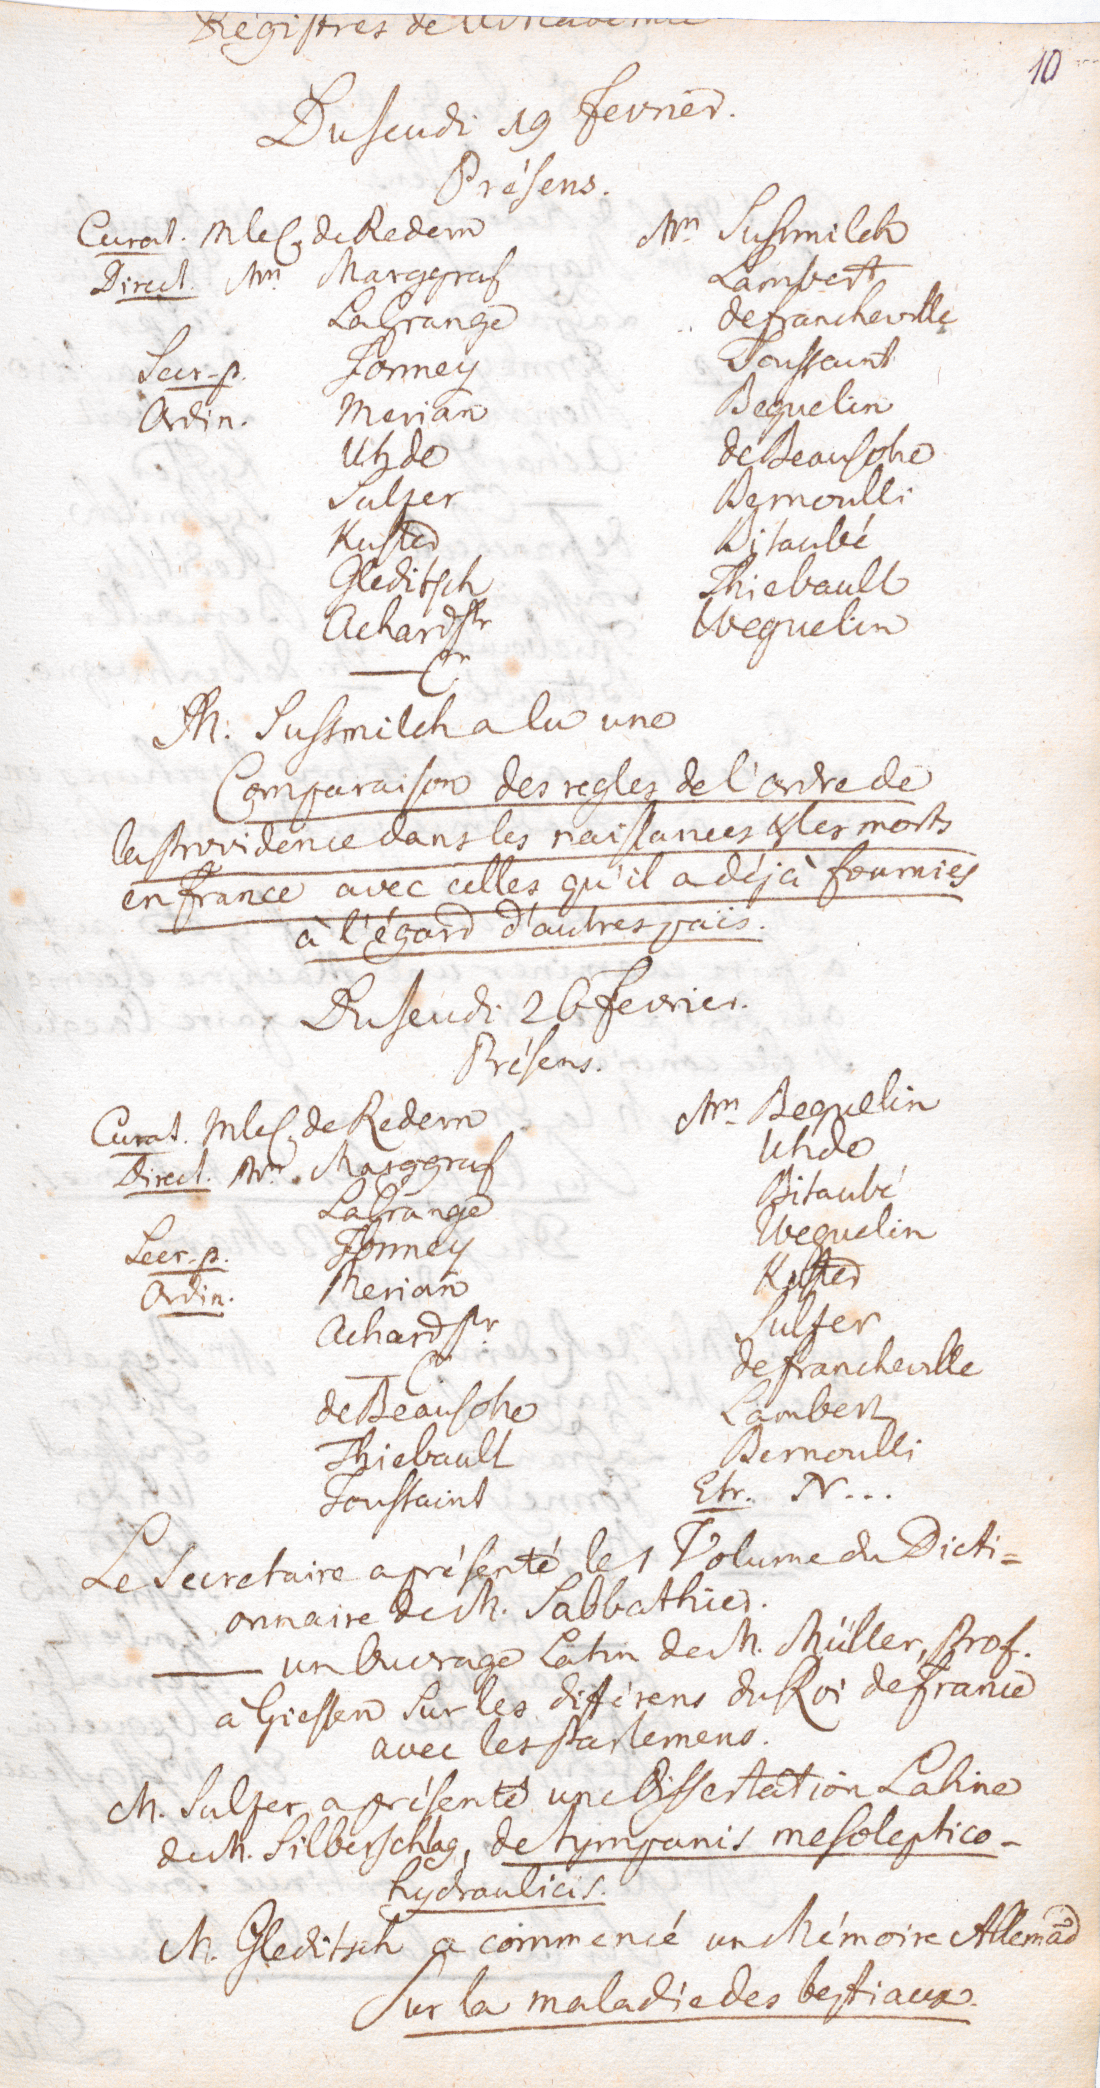 Régistres de l'Academie
10
Du Jeudi 19 Fevrier.
Présens.
Curat. Mr le C. de Redern
Direct. Mrs. Marggraf
LaGrange
Secr. p. Formey
Ordin. Merian
Uhde
Sulzer
Kuster
Gleditsch
Achard Sr
— Jr
Mrs Sussmilch
Lambert
de francheville
Toussaint
Beguelin
de Beausobre
Bernoulli
Bitaubé
Thiebault
Weguelin
M. Sussmilch a lu une
Comparaison des regles de l'ordre de
la Providence dans les naissances & les morts
en france avec celles qu'il a déjà fournies
à l'égard d'autres païs.
Du Jeudi 26 Fevrier.
Présens.
Curat. Mr le C. de Redern
Direct. Mrs. Marggraf
LaGrange
Secr. p. Formey
Ordin. Merian
Achard Sr
— Jr
de Beausobre
Thiebault
Toussaint
Mrs Beguelin
Uhde
Bitaubé
Weguelin
Kuster
Sulzer
de francheville
Lambert
Bernoulli
Etr. N...
Le Secretaire a présenté le 1 Volume du Dicti=
onnaire de M. Sabbathier.
— un Ouvrage Latin de M. Müller, Prof.
à Giessen sur les différens du Roi de france
avec les Parlemens.
M. Sulzer a présenté une Dissertation Latine
de M. Silberschlag, de tympanis mesoleptico-
hydraulicis.
M. Gleditsch a commencé un Mémoire Allemād
Sur la maladie des bestiaux.